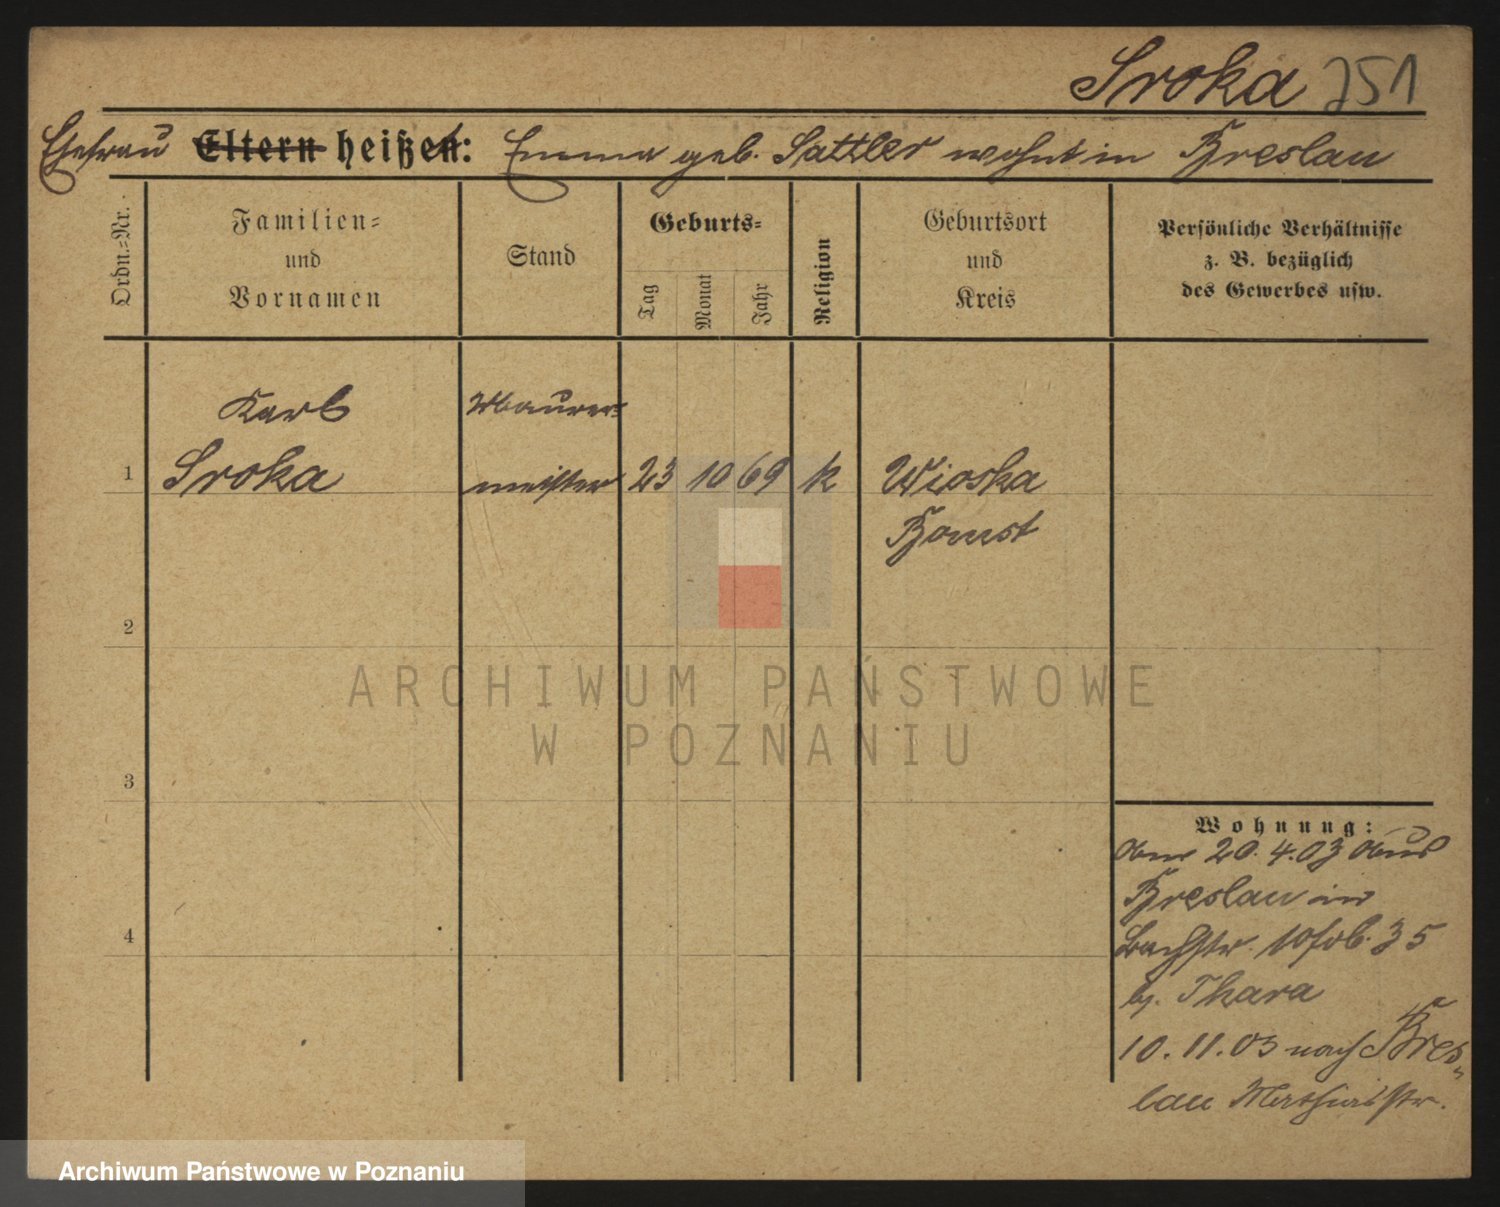 Sroka 251
Ehefrau Eltern heißen: Emma geb. Sattler wohnt in Breslau
Ordn.-Nr.
Familien-
und
Vornamen
Stand
Geburts-
Tag
Monat
Jahr
Religion
Geburtsort
und
Kreis
Persönliche Verhältnisse
z. B. bezüglich
des Gewerbes usw.
Karl Maurer-
1 Sroka meister 23 10 69 k Wioska
Bomst
2
ARCHIWUM PAŃSTWOWE
W POZNANIU
3
Wohnung:
20. 4. 03 aus
Breslau in
Bachstr. 10 35
bj. Thara
10. 11. 03 nach Bres-
lau Mathiasstr.
4
Archiwum Państwowe w Poznaniu